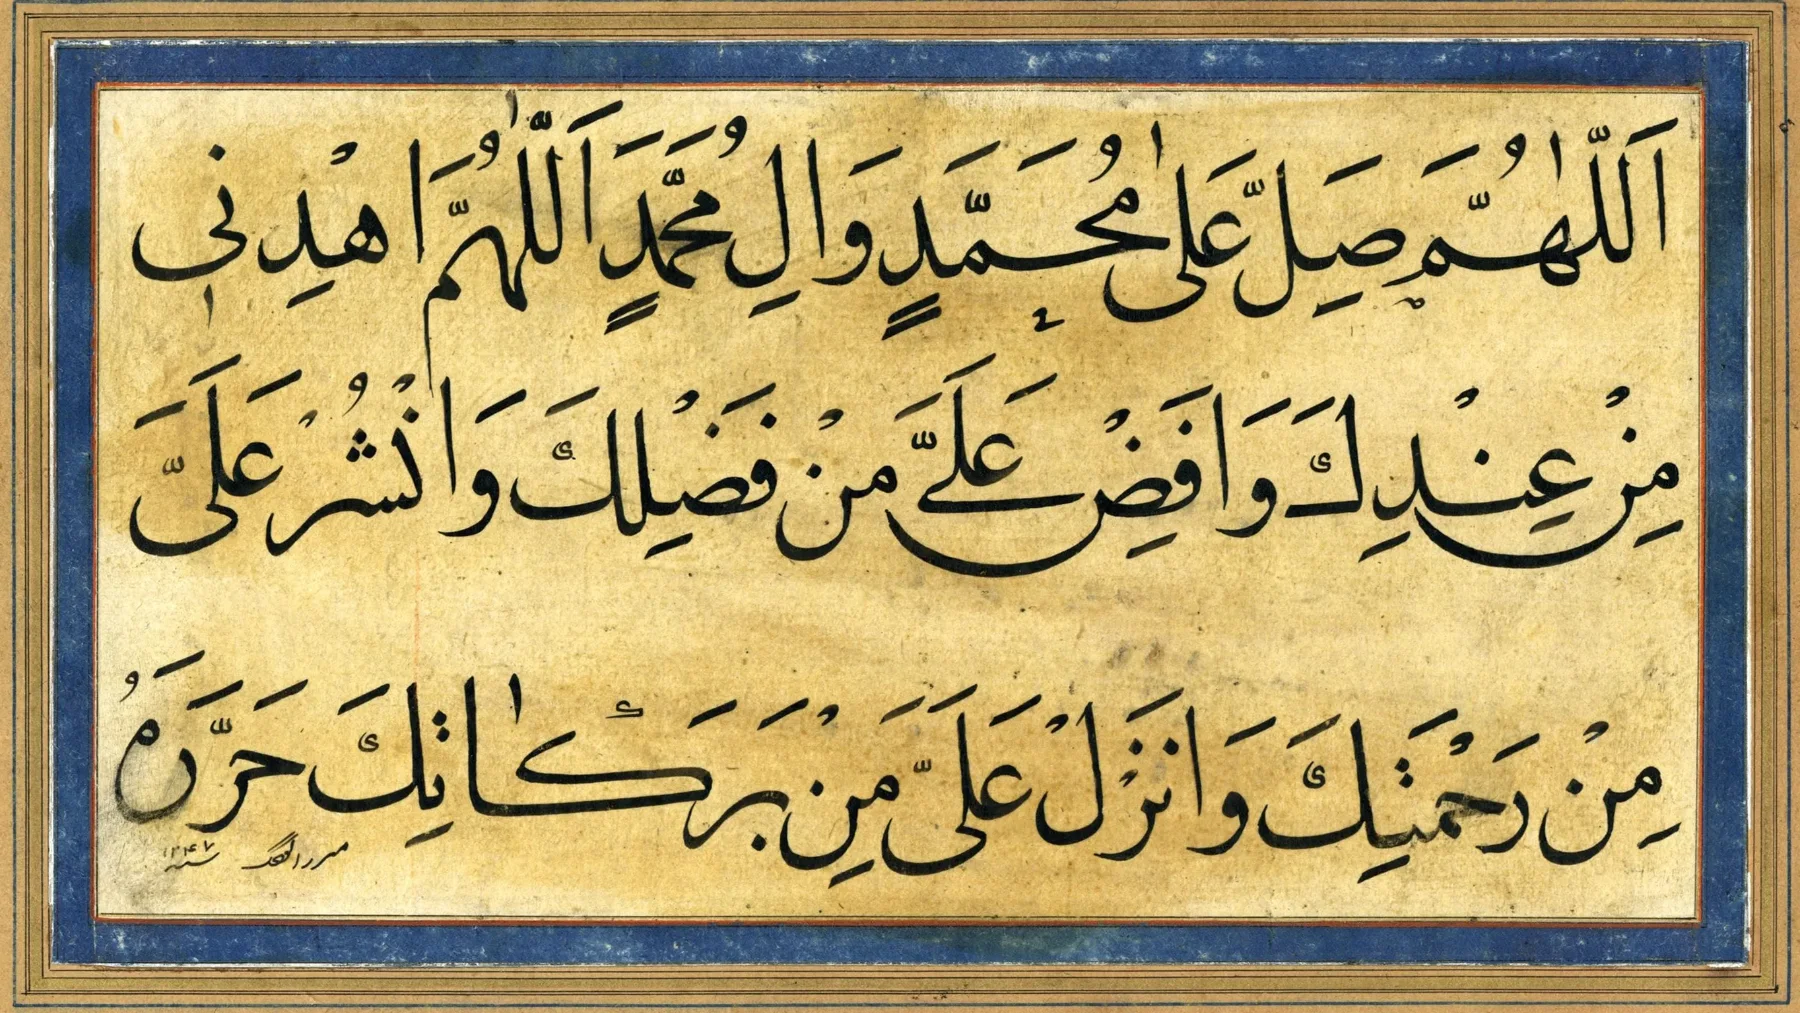 اَللّٰهُمَّ صَلِّ عَلٰى مُحَمَّدٍ وَالِ مُحَمَّدٍ اَللّٰهُمَّ اهْدِنِي
مِنْ عِنْدِكَ وَافِضْ عَلَيَّ مِنْ فَضْلِكَ وَانْشُرْ عَلَىَّ
مِنْ رَحْمَتِكَ وَانْزِلْ عَلَىَّ مِنْ بَرَكَاتِكَ حَرَّرَهُ
سنه ١٢٤٧